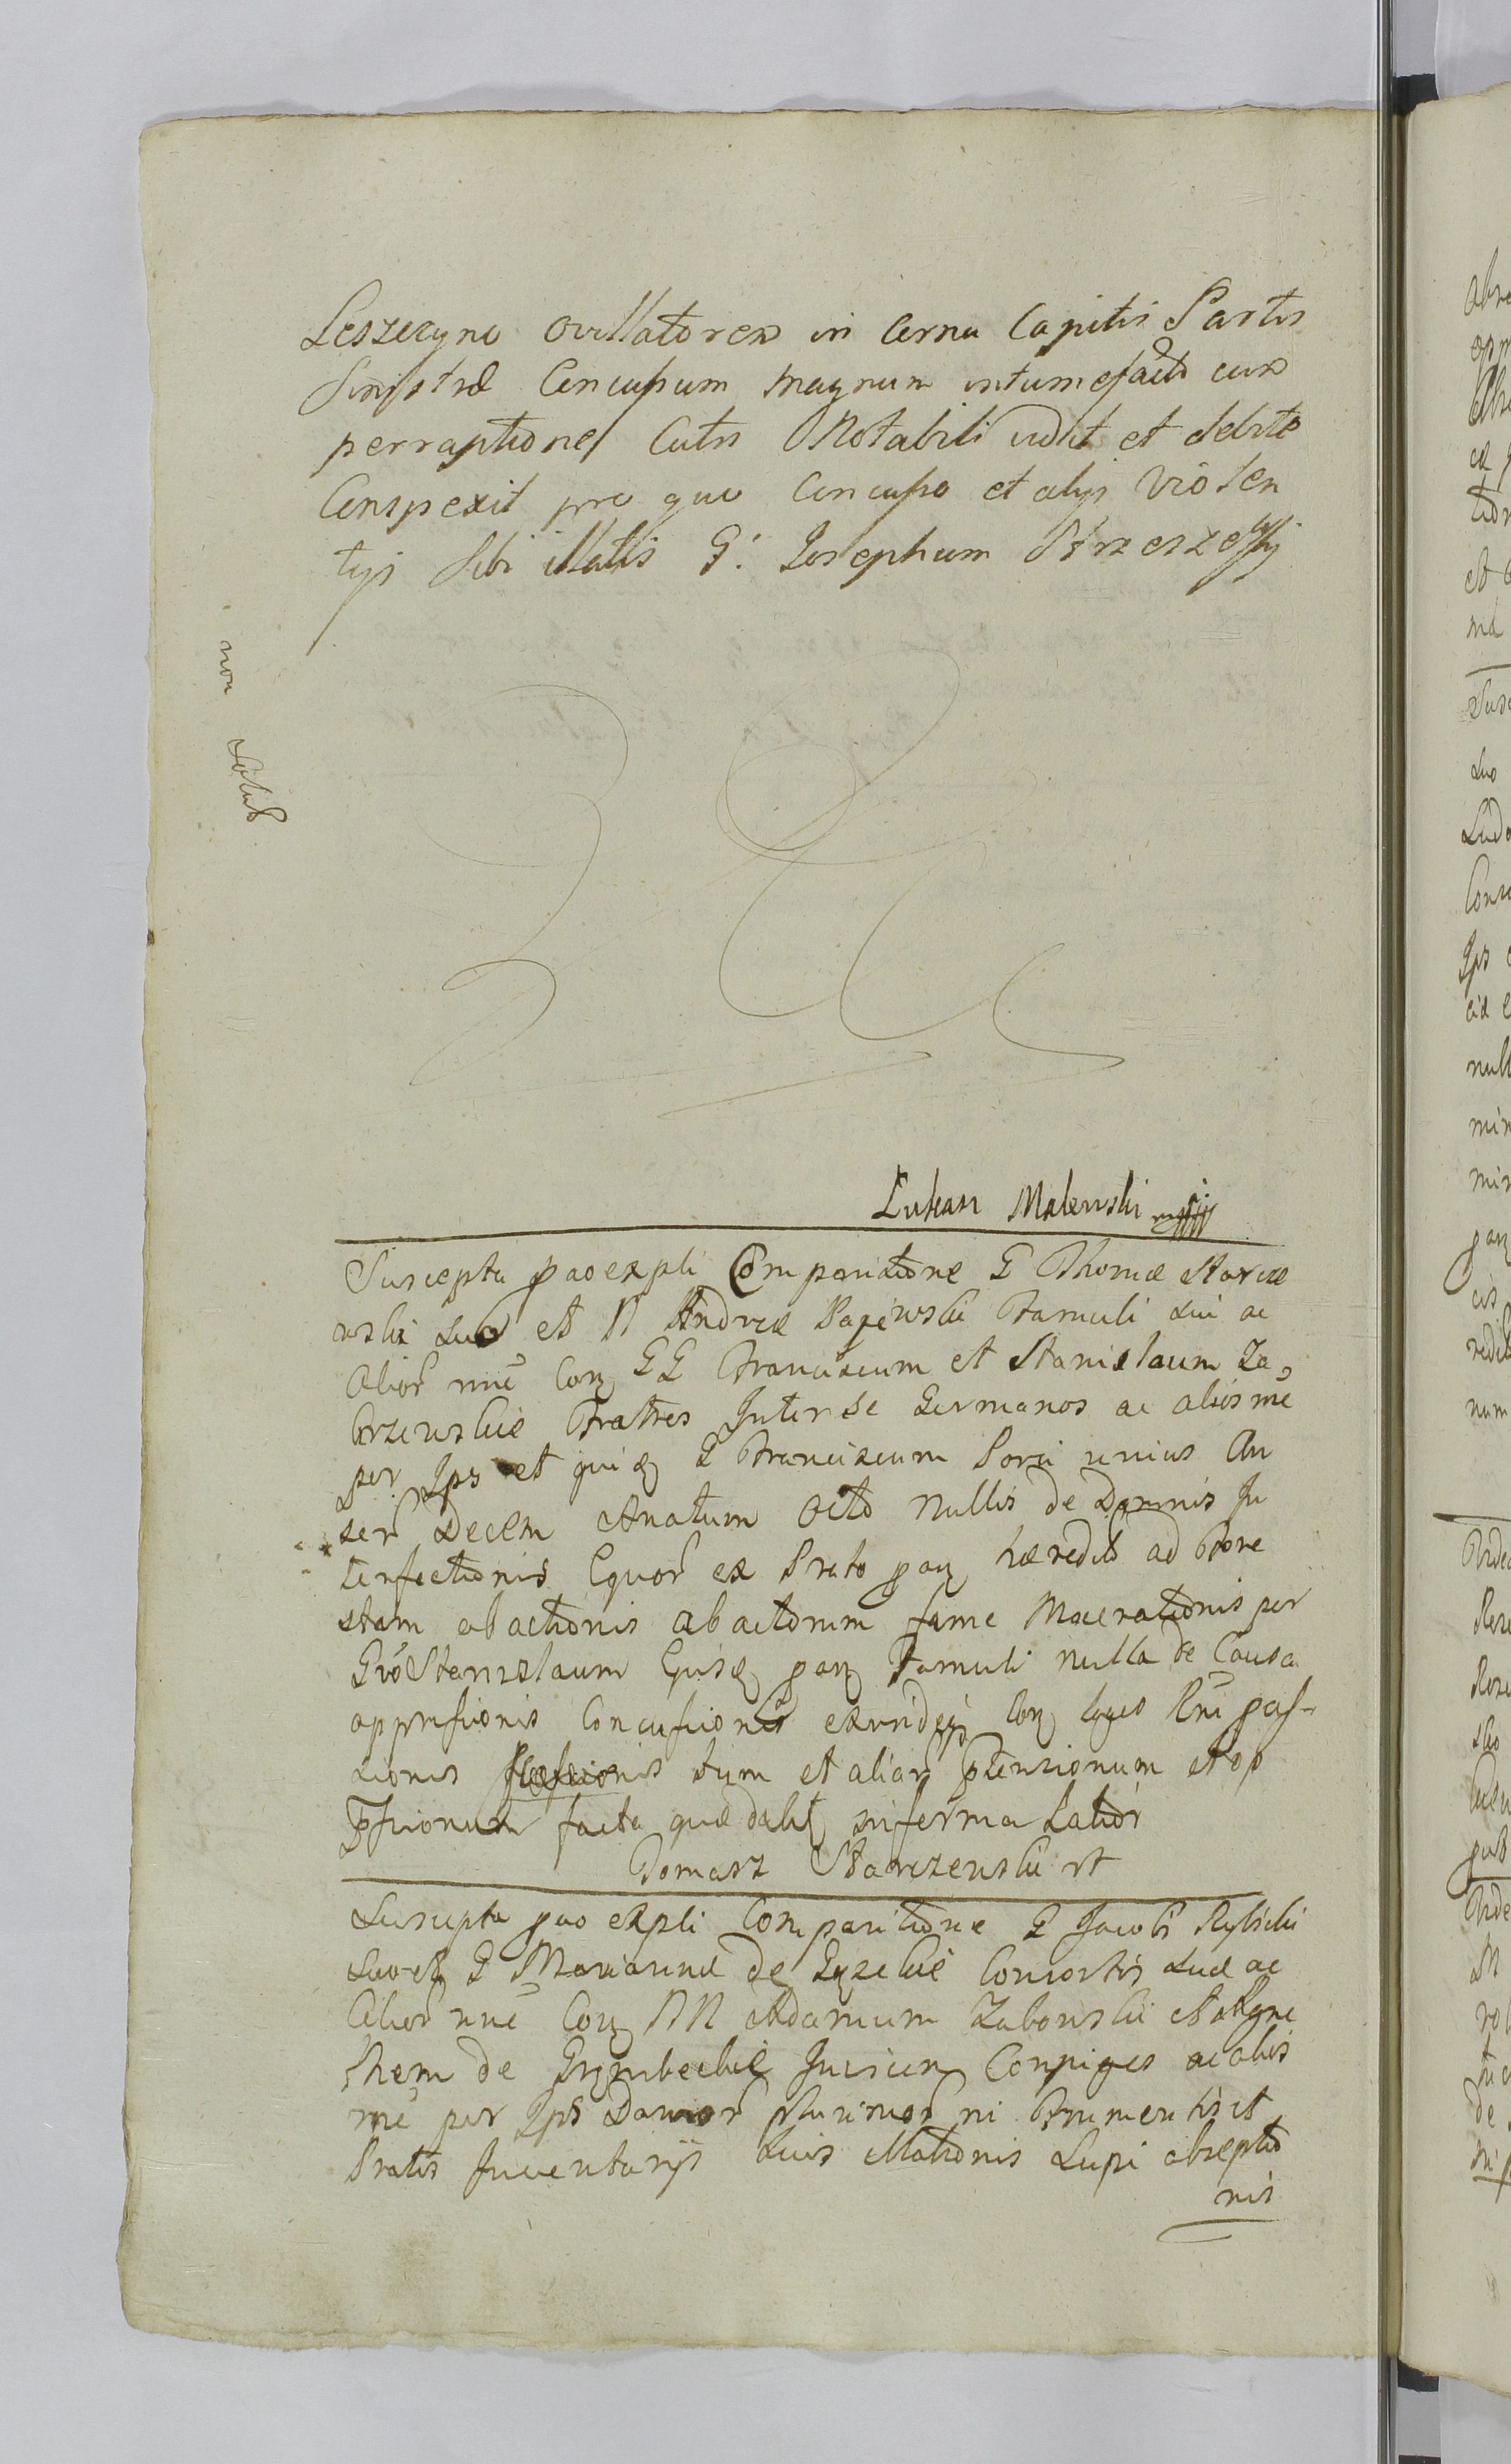 Leszczyno ovillatorem in Cornu Capitis Partis
Sinistræ Concussum magnum intumefactũ cum
perraptione Cutis Notabili vidit et debite
Conspexit pro quo Concusso et alijs violen
tijs Sibi illatis G. Josephum Strzeszewskj
non Solut
Lukasz Malewski mpp
Suscepta pao expli Comparitione G Thomæ Starcze
wski Suo et N Andreæ Papiewski Famuli Sui ac
Alior nne Con GG Franciscum et Stanislaum Za,
krzewskie Fratres Inter Se Germanos ac alios me
per Ips et quidq G Franciscum Porci unius An
ser Decem Anatum Octo Nullis de Damnis In
terfectionis Equor ex Prato pang hæredit ad Fore
stam abactionis abactorum fame Macerationis per
Gro Stanislaum Ejusq pang Famuli nulla de Causa
oppressionis Concussionis Con leges Rni pas-
sionis tum et aliar ptensionum et op
pssionum facta quæ dabit in forma Latiori
Tomasz Starczewski rt
Suscepta pao expli Comparitione G Jacobi Rybicki
Suo et G Mariannæ de Gyzekie Consortis Suæ ac
Alior nne Con NN Adamum Zabowski et Agne
them de Grzymbeckie Invicem Conjuges ac alios
me per Ips Damnor plurimor in Frumentis et
Pratis Inventarijs Suis Illationis Lupi abreptio
nis